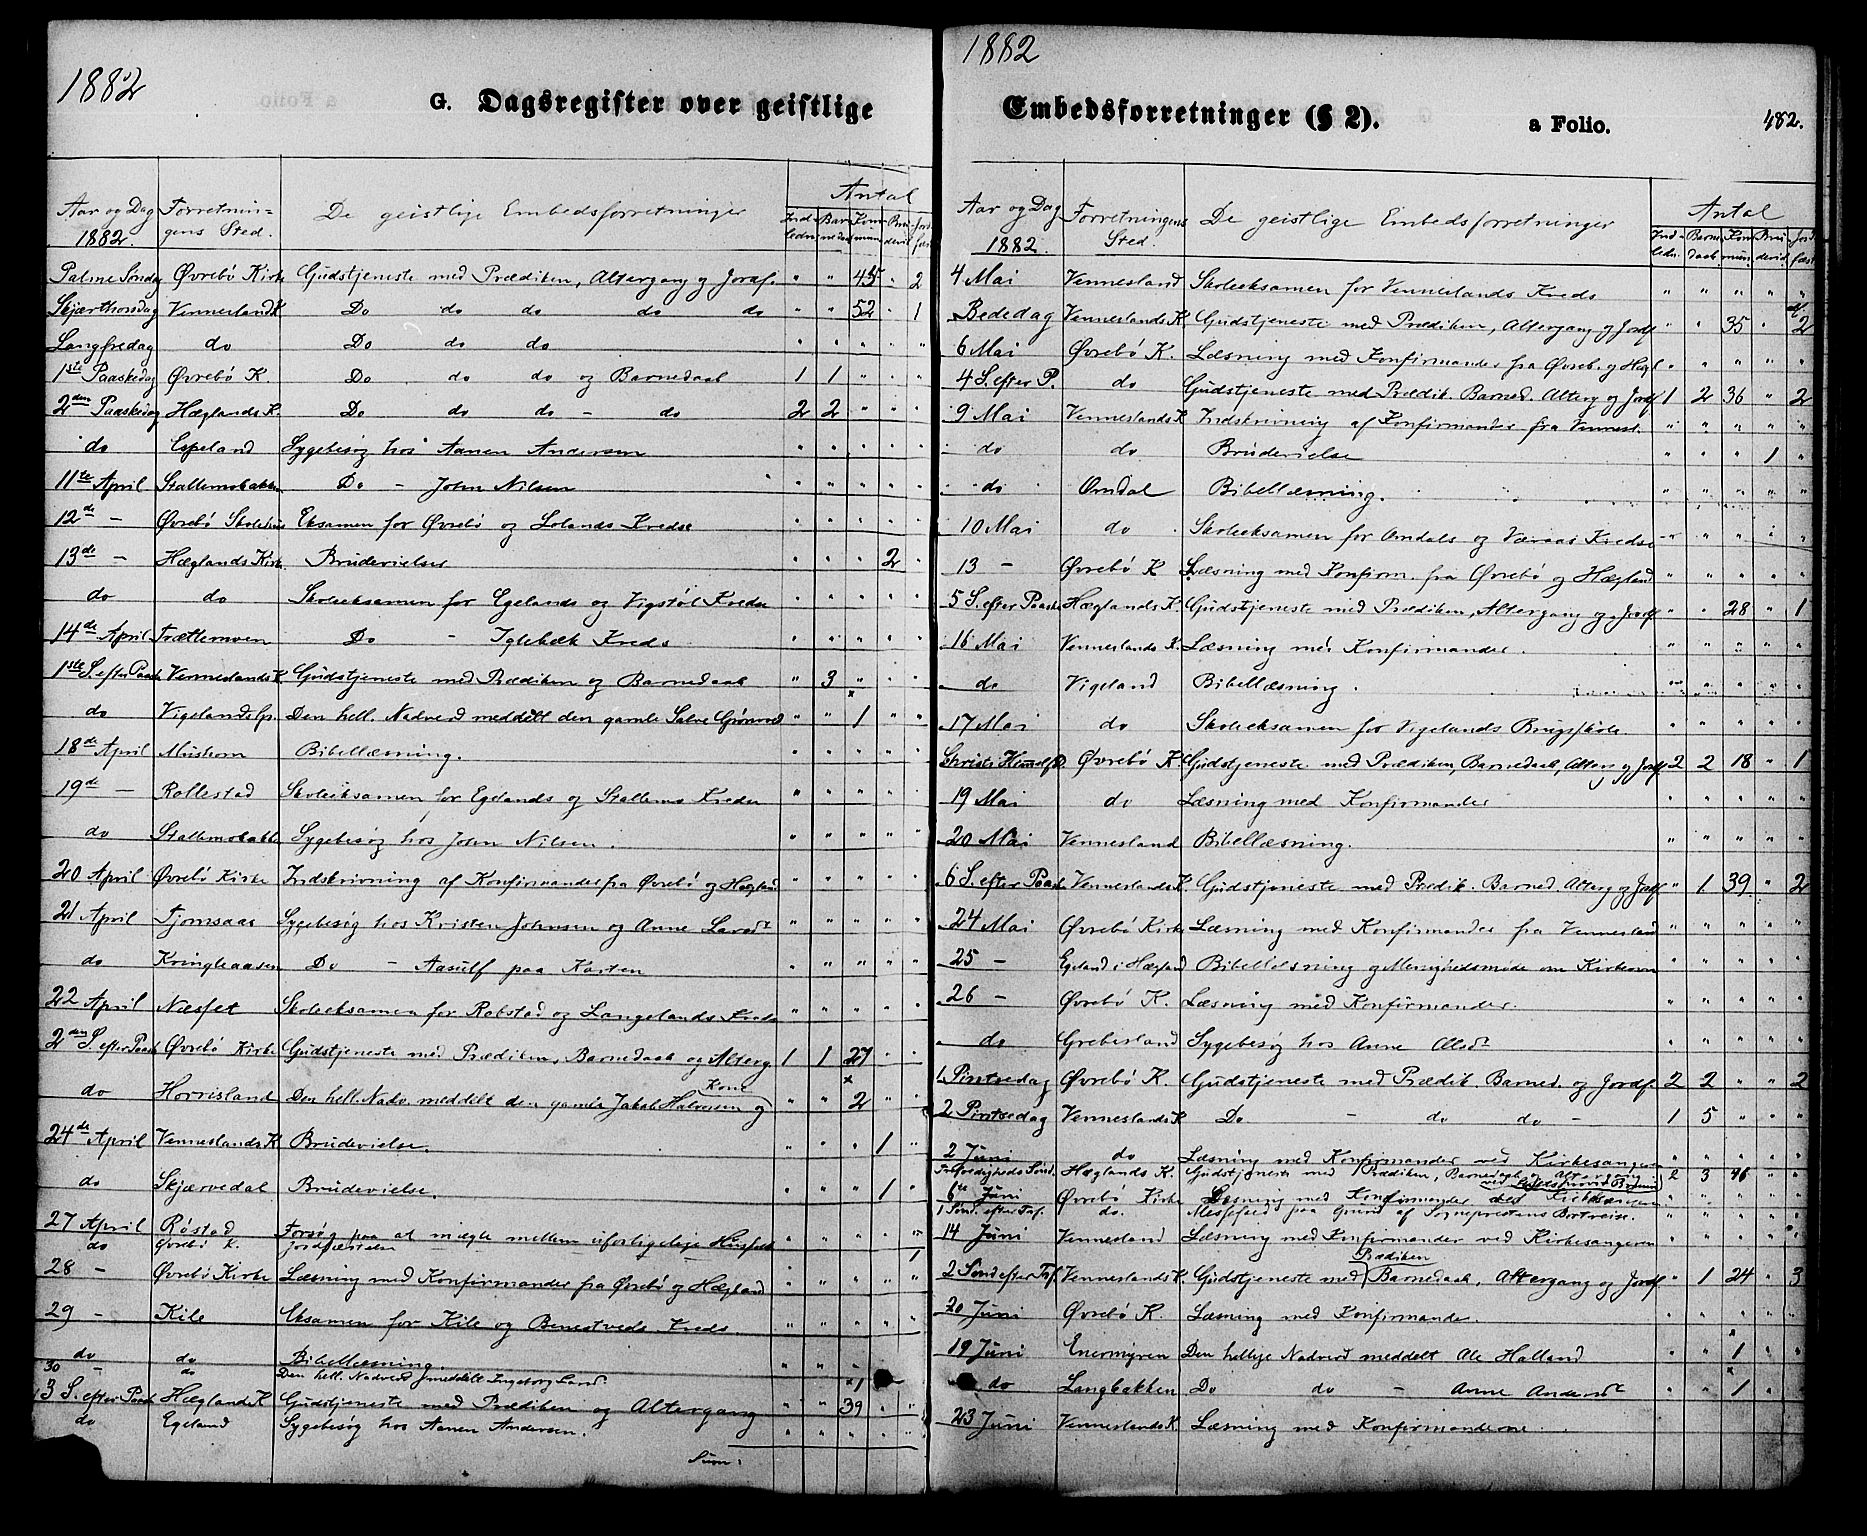 1882
G. Dagsregister over geistlige
Aar og Dag 1882. Forretningens Sted. De geistlige Embedsforretninger Antal
Palme Søndag Øvrebø Kirke Gudstjeneste med Prædiken, Altergang og Jordf. " " 45 " 2
Skjærthorsdag Vennesland K Do do do do do " " 52 " 1
Langfredag do Do do do " " " " "
1ste Paaskedag Øvrebø K. Do do do og Barnedaab 1 1 " " "
2den Paaskedag Hæglands K. Do do do - do 2 2 " " "
do Espeland Sygebesøg hos Aanen Andersen " " " " "
11te April Stallemobakken Do - John Nilsen " " " " "
12te - Øvrebø Skolehus Eksamen for Øvrebø og Lolands Kredse " " " " "
13de - Hæglands Kirke Brudevielser " " " 2 "
do do Skoleeksamen for Egelands og Vigstøl Kredse " " " " "
14de April Trættemoen Do - Iglebæk Kreds " " " " "
1ste S. efter Paask Venneslands K Gudstjeneste med Prædiken og Barnedaab " 3 " " "
do Vigeland Den hell. Nadverd meddelt den gamle Salve " " 1 " "
18de April Mushom Bibellæsning. " " " " "
19de - Rollestad Skoleeksamen for Egelands og Stallemo Kredse " " " " "
do Stallemobakken Sygebesøg hos John Nilsen. " " " " "
20 April Øvrebø Kirke Indskrivning af Konfirmander fra Øvrebø og Hægland " " " " "
21 April Tjomsaas Sygebesøg hos Kristen Johnsen og Anne " " " " "
do Kringleaasen Do - Aasulf paa Korten " " " " "
22 April Næset Skoleeksamen for Robstad og Langelands Kredse " " " " "
2den S. efter Paask Øvrebø Kirke Gudstjeneste med Prædiken, Barnedaab og Alterg. 1 1 27 " "
do Horrisland Den hell. Nadv. meddelt den gamle Jakob Halvorsen og Kone " " 2 " "
24de April Venneslands K Brudevielse. " " " 1 "
do Skjærvedal Brudevielse. " " " 1 "
27 April Røstad Forsøg paa at mægle mellem uforligelige " " " " "
do Øvrebø K. Jordfæstelse 1
28 - Øvrebø Kirke Læsning med Konfirmander fra Øvrebø og Hægland " " " " "
29 - Kile Eksamen for Kile og Benestveds Kreds. " " " " "
do do Bibellæsning. " " "
30 - do Den hell. Nadverd meddelt Ingeborg 1
3 S. efter Paask Hægland K Gudstjeneste med Prædiken og Altergang " " 39 " "
do Egeland Sygebesøg hos Aanen Andersen. " " " " "
Sum:
1882
Embedsforretninger (§ 2).
a Folio.
482.
Aar og Dag 1882. Forretningens Sted. De geistlige Embedsforretninger Antal
4 Mai Vennesland Skoleeksamen for Venneslands Kreds " " " " "
Bededag Venneslands K Gudstjeneste med Prædiken, Altergang og Jordf " " 35 " 2
6 Mai Øvrebø K. Læsning med Konfirmander fra Øvreb. og Hægl " " " " "
4 S. efter P. do Gudstjeneste med Prædik. Barned. Alterg og Jordf 1 2 36 " 2
9 Mai Venneslands K Indskrivning af Konfirmander fra Vennesl. " " " " "
do do Brudevielse " " " 1 "
do Omdal Bibellæsning. " " " " "
10 Mai do Skoleeksamen for Omdals og Væraas Kredse " " " " "
13 - Øvrebø K Læsning med Konfirm. fra Øvrebø og Hægland " " " " "
5 S. efter Paask Hæglands K. Gudstjeneste med Prædiken, Altergang og Jordf " " 28 " 1
16 Mai Venneslands K. Læsning med Konfirmander. " " " " "
do Vigeland Bibellæsning. " " " " "
17 Mai do Skoleeksamen for Vigelands Brugsskole. " " " " "
Christi Himmelf.D. Øvrebø K. Gudstjeneste med Prædiken, Barnedaab, Alterg og Jordf 2 2 18 " 1
19 Mai do Læsning med Konfirmander " " " " "
20 Mai Vennesland Bibellæsning. " " " " "
6 S. efter Paask Venneslands K. Gudstjeneste med Prædik. Barned. Alterg og Jordf " 1 39 " 2
24 Mai Øvrebø Kirke Læsning med Konfirmander fra Vennesland " " " " "
25 - Egeland i Hægland Bibellæsning og Menighedsmøde om Kirkeveien " " " " "
26 - Øvrebø K. Læsning med Konfirmander. " " " " "
do Grebesland Sygebesøg hos Anne Olsdt " " " " "
1 Pintsedag Øvrebø K. Gudstjeneste med Prædik. Barned. og Jordf. 2 2 " " 2
2 Pintsedag Venneslands K Do - do do - 1 5 " " "
2 Juni do Læsning med Konfirmander ved Kirkesangeren " " " " "
Trefoldigheds Sønd. Hæglands K. Gudstjeneste med Prædiken, Barnedaab og Alterg 2 3 46 " "
6te Juni Øvrebø Kirke Læsning med Konfirmander ved Kirkesangeren " " " " "
1 Sønd. efter Tref. do. Messefald paa Grund af Sogneprestens Bortreise. " " " " "
14 Juni Vennesland Læsning med Konfirmander ved Kirkesangeren " " " " "
2 Sønd efter Tref. Venneslands K. Gudstjeneste med Prædiken Barnedaab, Altergang og Jordf " 1 24 " 3
20 Juni Øvrebø K. Læsning med Konfirmander. " " " " "
19 Juni Enermyren Den hellige Nadverd meddelt Ole Halland " " 1 " "
do Langbakken Do do - Anne Andersdt " " 1 "
23 Juni Venneslands K. Læsning med Konfirmanderne " " " " "